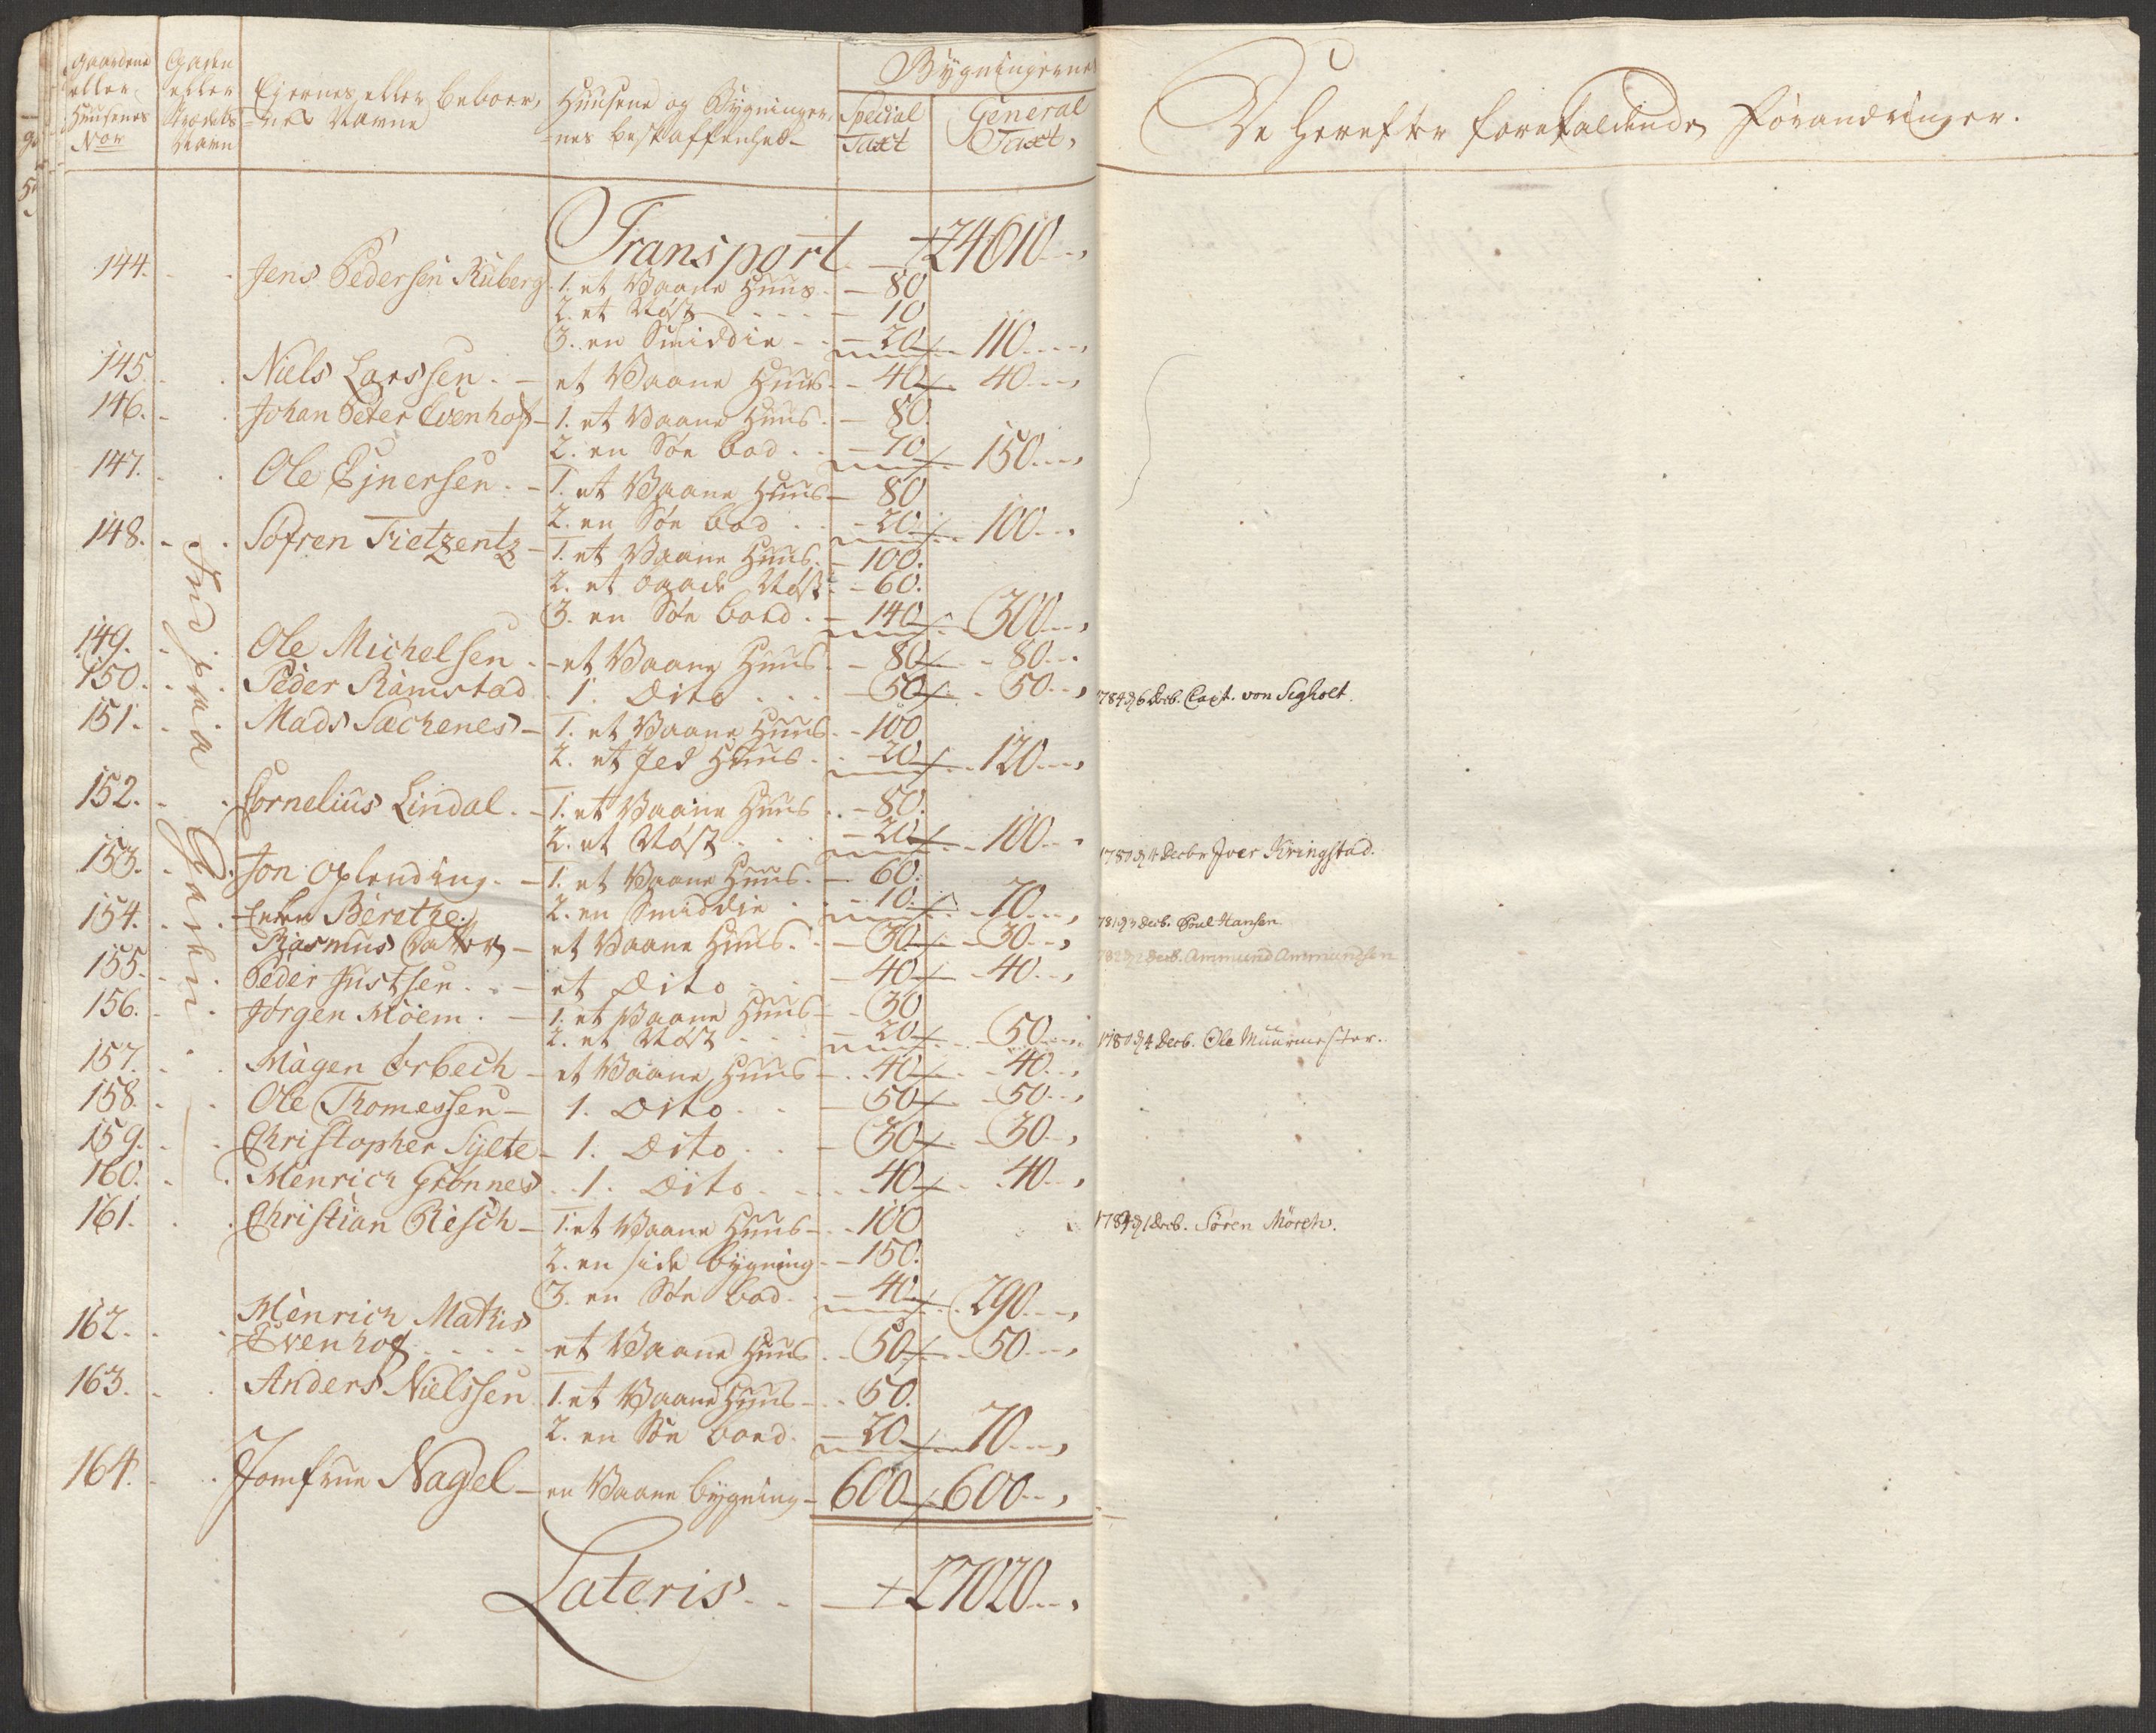 Gaardene
eller
Huusenes
Nor
Gaden
eller
Strædets
Navn
Ejernes eller Beboer,
=nes Navne
Huusene og Bygninger,
=nes beskaffenhed
Bygningernes
Special
Taxt
General
Taxt,
Transport - 24610
144. Jens Pedersen Kuberg 1. et Vaane Huus - 80
2. et Nøst - 10
3. en Smiddie - 20 110
145. Niels Larssen - et Vaane Huus - 40 40
146. Johan Peter Evenhof - 1. et Vaane Huus - 80.
2. en Søe bod - 70 150
147. Ole Ejnersen - 1. et Vaane Huus - 80
2. en Søe bod - 20 100
148. Søfren Tietzentz - 1. et Vaane Huus - 100.
2. et Nøst - 60.
3. en Søe boed - 140 300
Ind paa Gaden
149. Ole Michelsen - et Vaane Huus - 80 80
150. Peder Ramstad 1. Dito - 50 50
151. Mads Sechenes - 1. et Vaane Huus - 100
2. et Ild Huus - 20 120
152. Cornelius Lindal - 1. et Vaane Huus - 80.
2. et Nøst - 20 100
153. Jon Oplending - 1. et Vaane Huus - 60.
2. en Smiddie - 10 70
154. Enken Berethe
Rasmus Datter - et Vaane Huus - 30 30
155. Peder Justsen - et Dito - 40 40
156. Jørgen Moem - 1. et Vaane Huus - 30
2. et Nøst - 20 50
157. Magen Orbech - et Vaane Huus - 40 40
158. Ole Thomessen - 1. Dito - 50 50
159. Christopher Sylte - 1. Dito - 30 30
160. Henrich Grønnes 1. Dito 40 40
161. Christian Resch - 1. et Vaane Huus - 100
2. en side bygning - 150.
3. en Søe bod - 40 290
162. Henrich Mathis
Evenhof - et Vaane Huus 50 50
163. Anders Nielssen 1. et Vaane Huus - 50.
2. en Søe boed - 20 70
164. Jomfrue Nagel - en Vaane bygning - 600 600
Lateris - 27020
De herefter forefaldende Forandringer.
1784 d 6 Decb. Capt. von Segholt.
1780 d 4 Decbr Iver Kringstad.
1781 d 3 Decb. Poul Hansen
1782 d 2 Decb. Ammund Ammundsen
1780 d 4 Decb. Ole Muurmester.
1784 d 1 Decb. Søren Mørch.